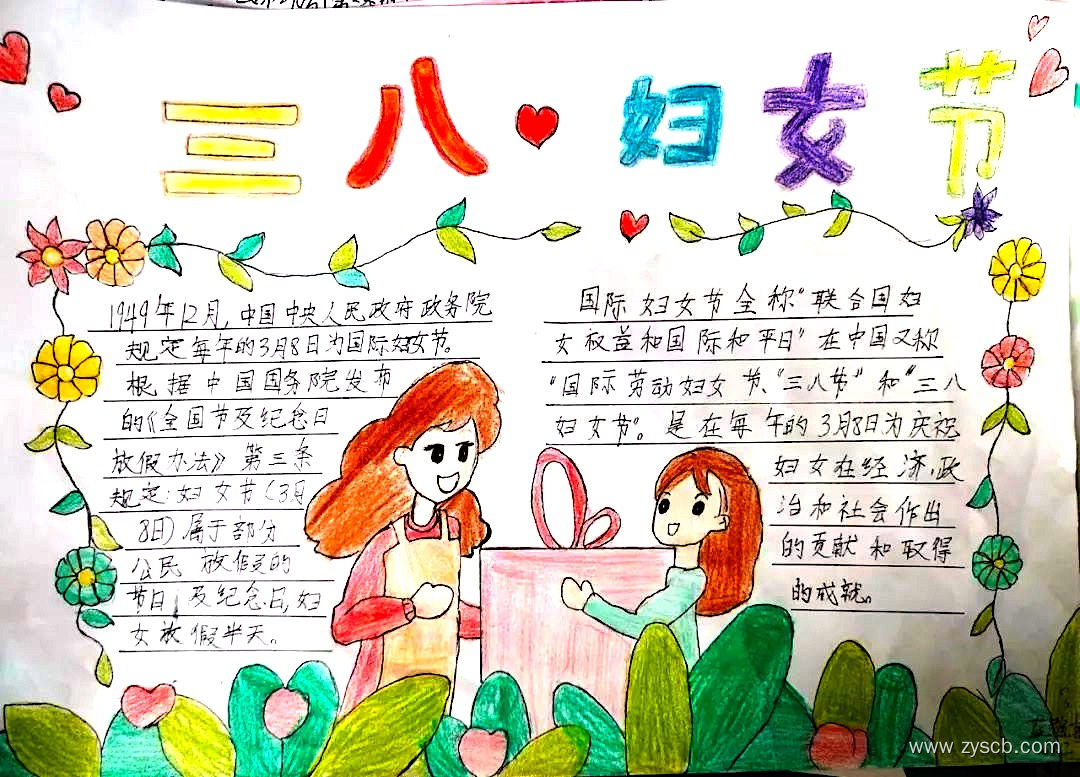 三八妇女节
1949年12月,中国中央人民政府政务院
规定每年的3月8日为国际妇女节。
根据中国国务院发布
的《全国节及纪念日
放假办法》第三条
规定:妇女节(3月
8日)属于部分
公民放假的
节日及纪念日,妇
女放假半天。
国际妇女节全称"联合国妇
女权益和国际和平日"在中国又称
"国际劳动妇女节、"三八节"和"三八
妇女节"。是在每年的3月8日为庆祝
妇女在经济,政
治和社会作出
的贡献和取得
的成就。
www.zyscb.com